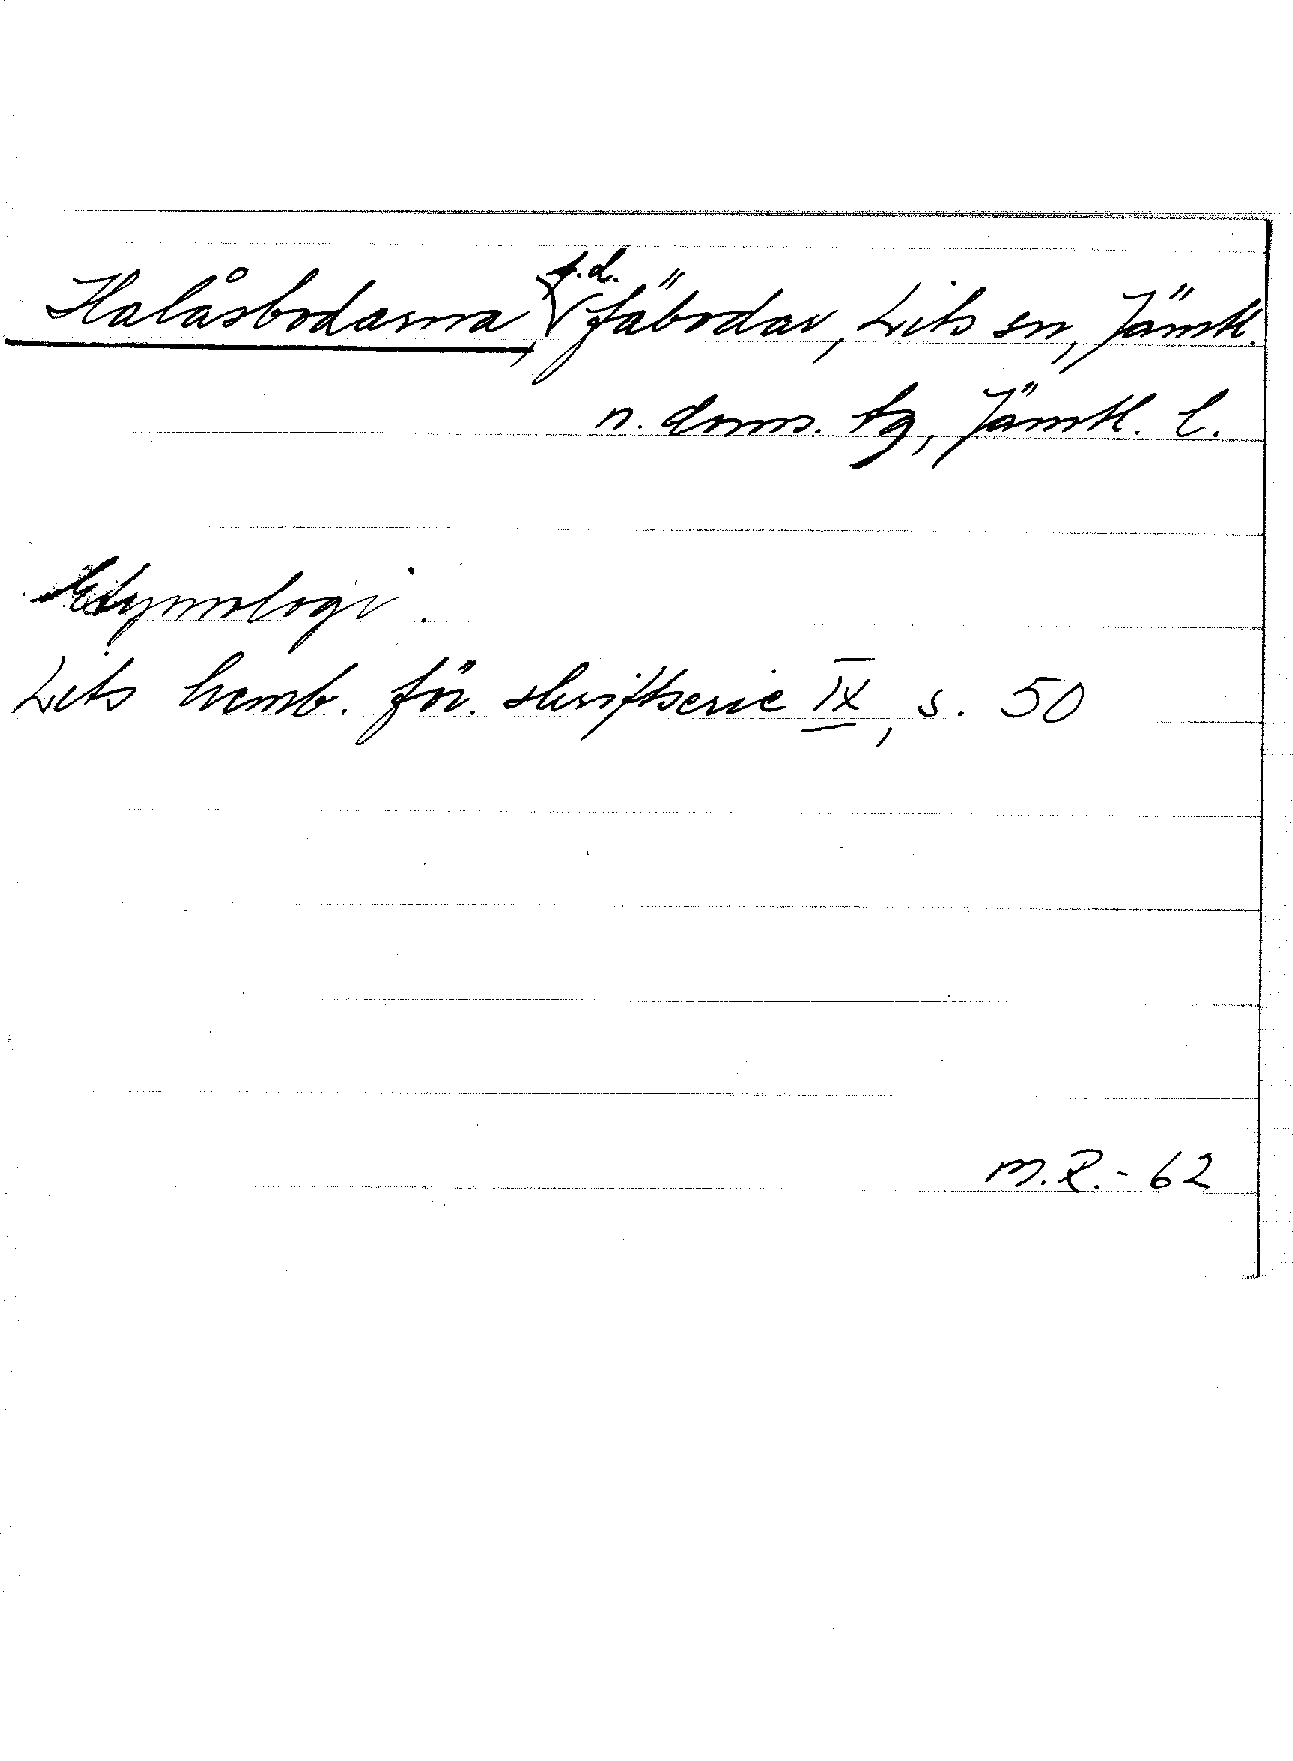 Halåsbodarna, f.d. fäbodar, Lits sn, Jämtl.
n. doms. tg, Jämtl. l.
Etymologi.
Lits hemb. för. skriftserie IX, s. 50
M.R.-62